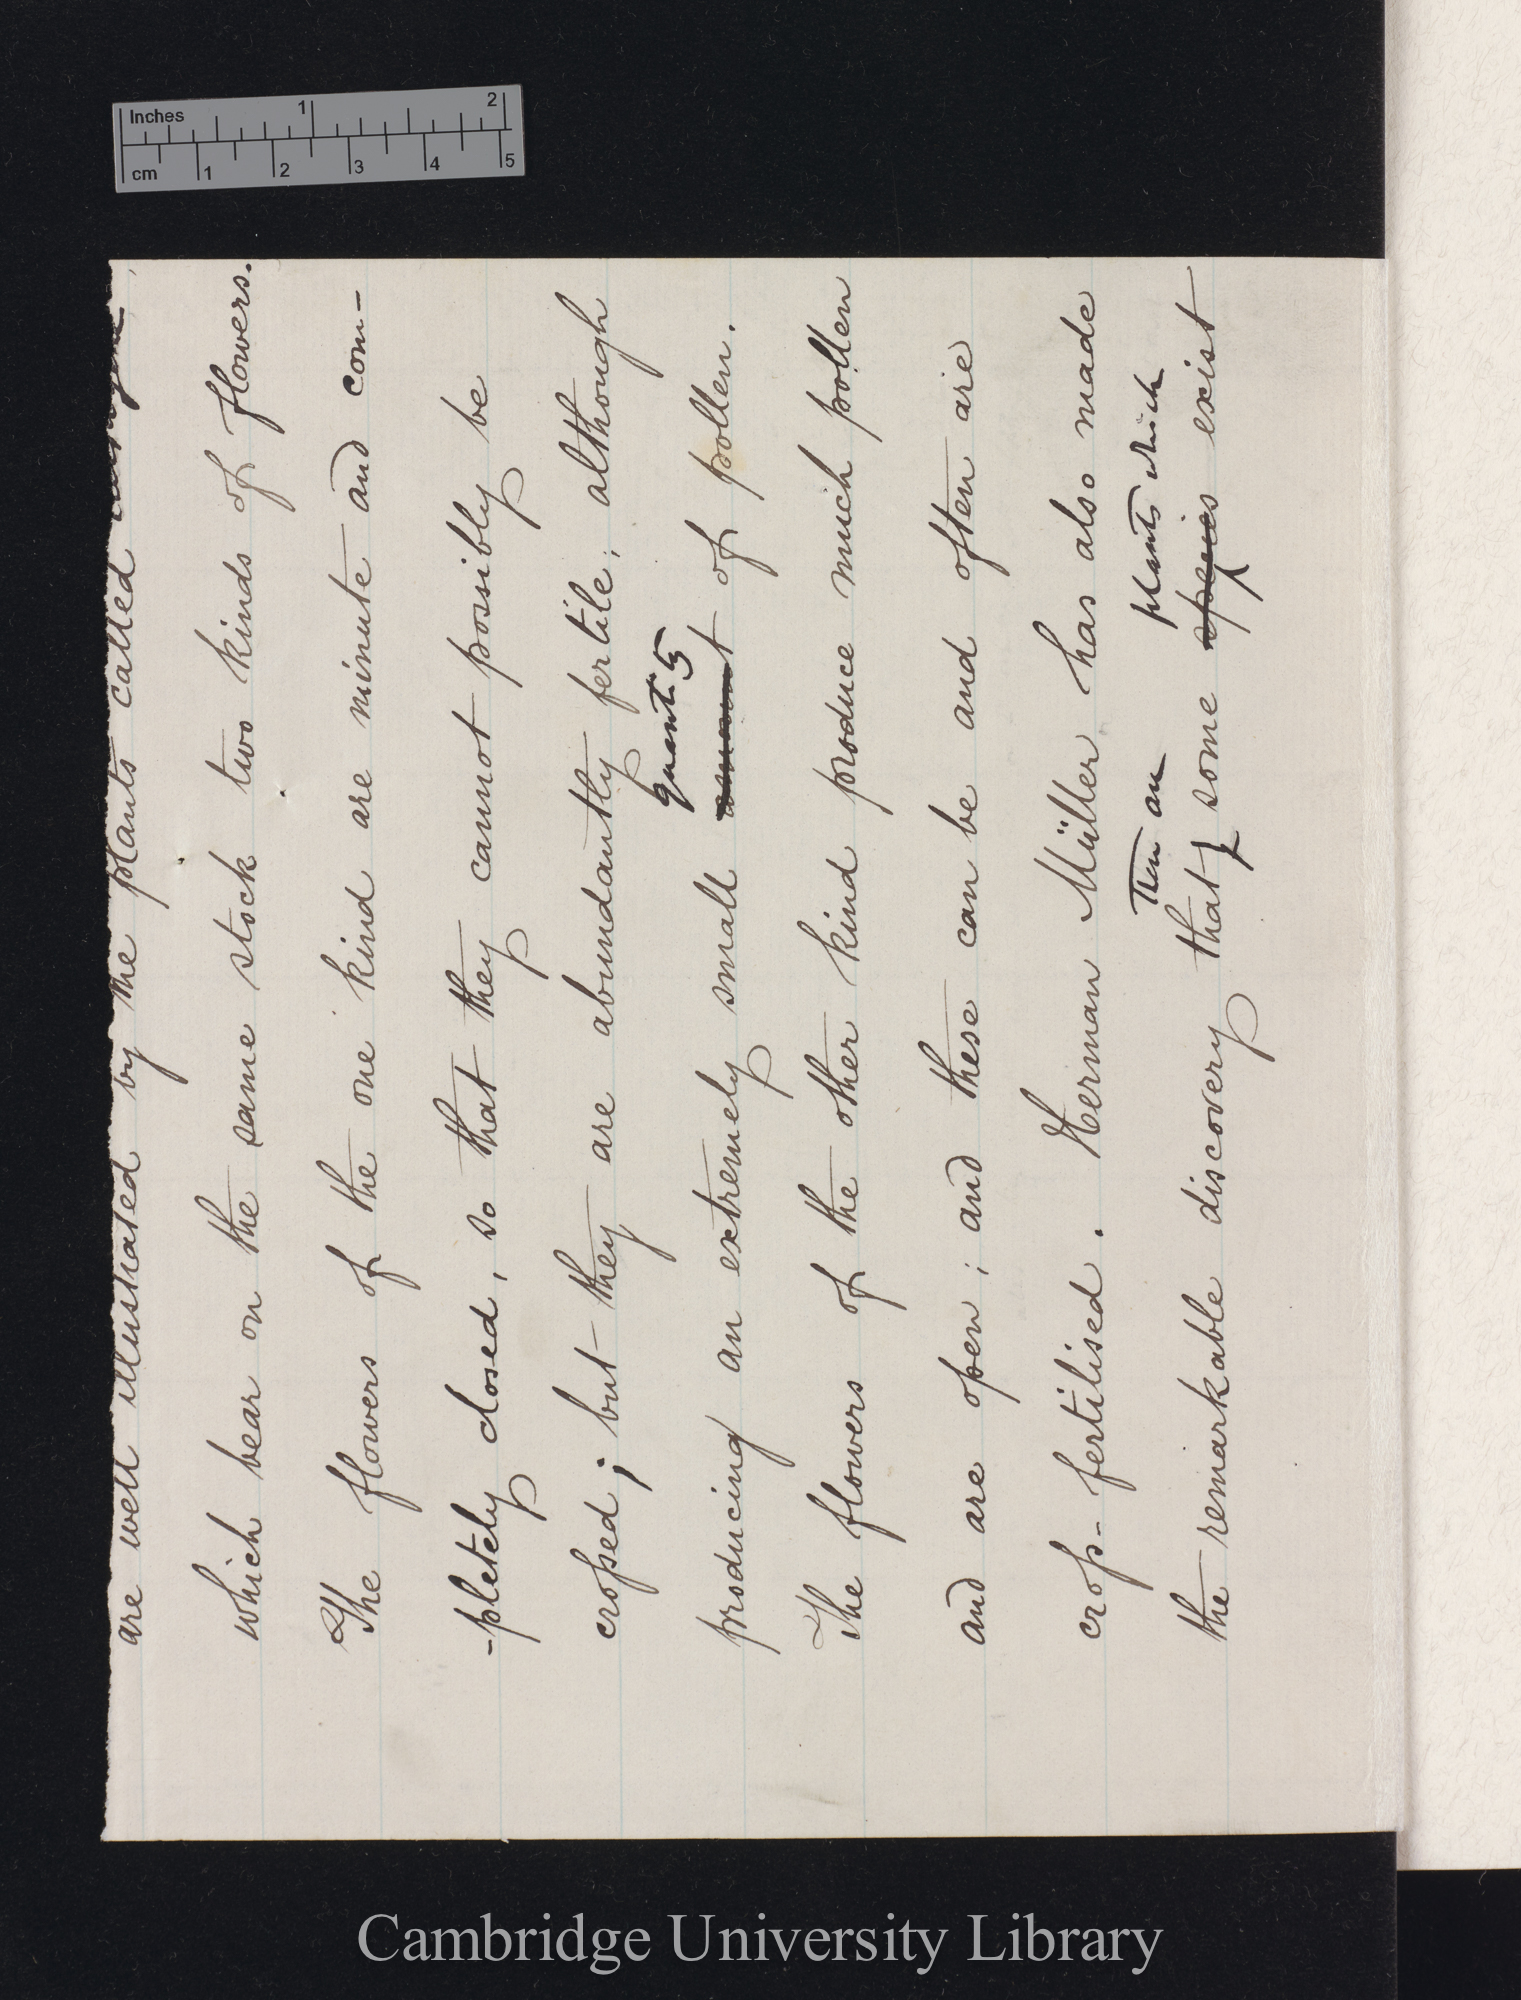 Inches 1 2
cm 1 2 3 4 5
are well illustrated by the plants called
which bear on the same stock two kinds of flowers.
The flowers of the one kind are minute and com-
-pletely closed, so that they cannot possibly be
crossed; but they are abundantly fertile; although
quantity
producing an extremely small amount of pollen.
The flowers of the other kind produce much pollen
and are open; and these can be and often are
cross-fertilised. Herman Müller has also made
there are plants which
the remarkable discovery that some species exist
Cambridge University Library